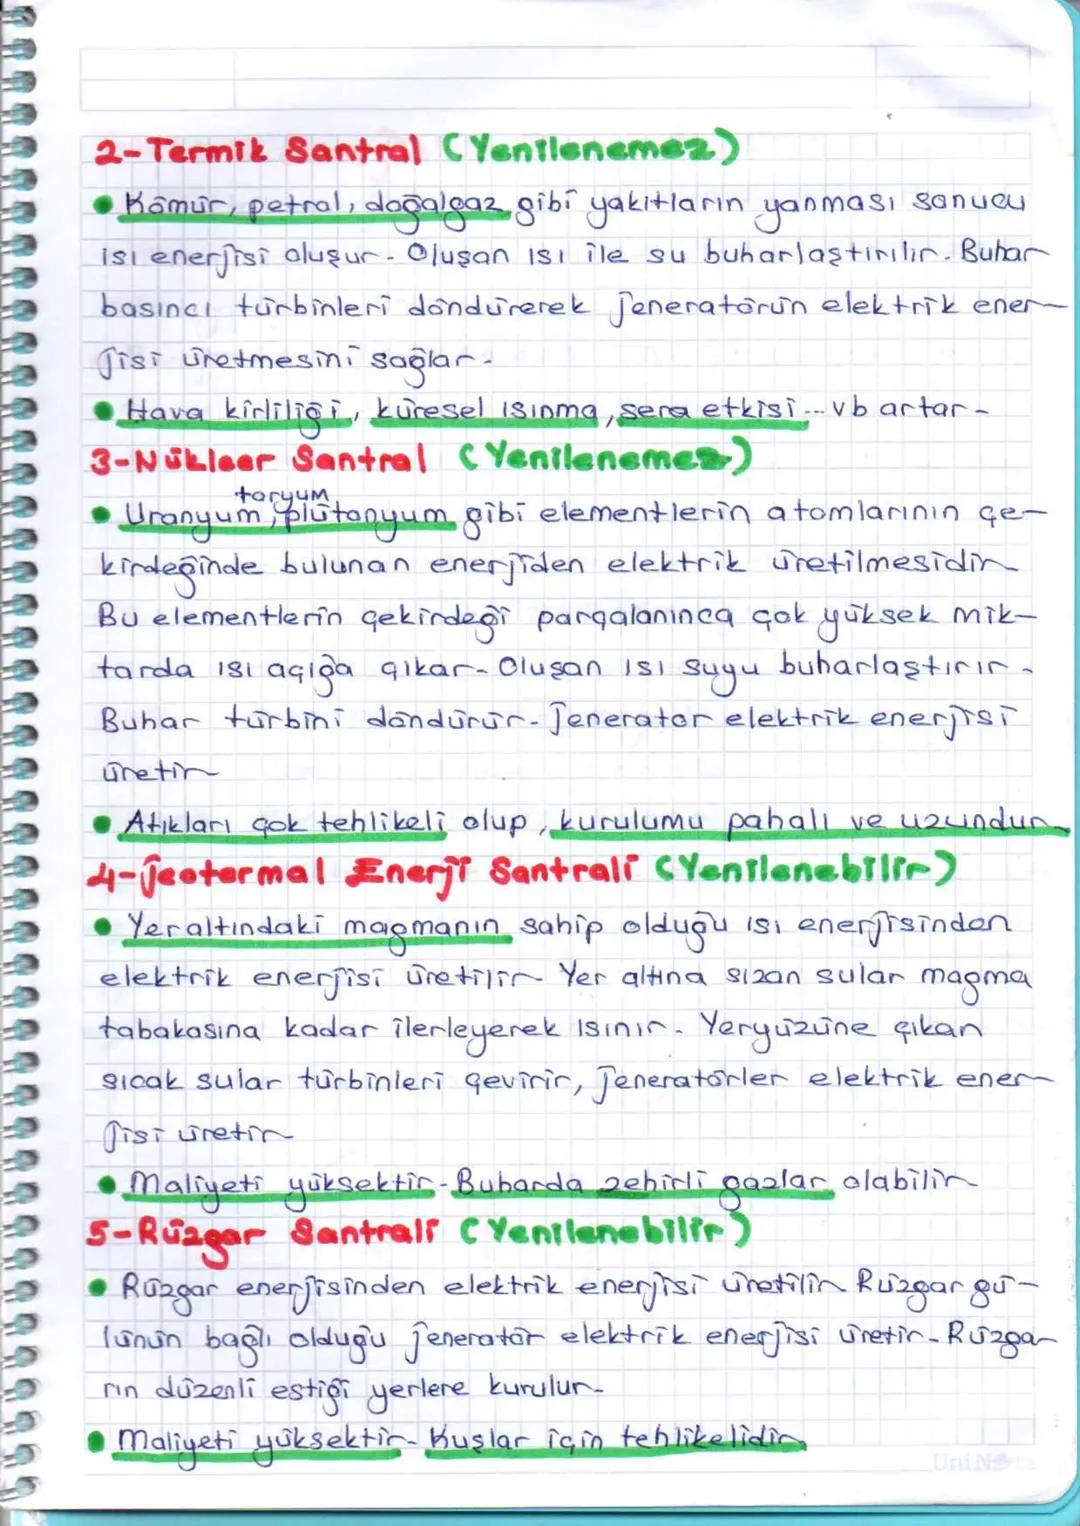 2-Termik Santral (Yenilenemez)
• Kömür, petrol, doğalgaz gibi yakıtların yanması sonucu
ısı enerjisi oluşur. Oluşan ısı ile su buharlaştırılır. Buhar
basıncı türbinleri döndürerek jeneratörün elektrik ener-
jisi üretmesini sağlar.
• Hava kirliliği, küresel ısınma, sera etkisi... vb artar.
3-Nükleer Santral (Yenilenemez)
toryum
• Uranyum, plütonyum gibi elementlerin atomlarının çe-
kirdeğinde bulunan enerjiden elektrik üretilmesidir.
Bu elementlerin çekirdeği parçalanınca çok yüksek mik-
tarda ısı açığa çıkar. Oluşan ısı suyu buharlaştırır.
Buhar türbini döndürür. Jeneratör elektrik enerjisi
üretir.
• Atıkları çok tehlikeli olup, kurulumu pahalı ve uzundur.
4-Jeotermal Enerji Santrali (Yenilenebilir)
• Yeraltındaki magmanın sahip olduğu ısı enerjisinden
elektrik enerjisi üretilir. Yer altına sızan sular magma
tabakasına kadar ilerleyerek ısınır. Yeryüzüne çıkan
sıcak sular türbinleri çevirir, jeneratörler elektrik ener-
jisi üretir.
• Maliyeti yüksektir. Buharda zehirli gazlar olabilir.
5-Rüzgar Santrali (Yenilenebilir)
• Rüzgar enerjisinden elektrik enerjisi üretilir. Rüzgar gü-
lünün bağlı olduğu jeneratör elektrik enerjisi üretir. Rüzga-
rın düzenli estiği yerlere kurulur.
• Maliyeti yüksektir. Kuşlar için tehlikelidir.